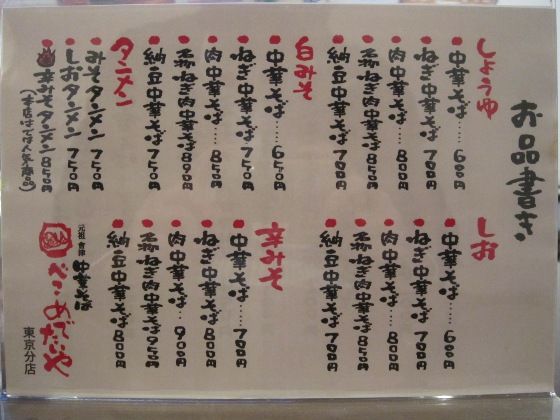 お品書き
しょうゆ
中華そば……600円
ねぎ中華そば…700円
肉中華そば……800円
名称ねぎ肉中華そば850円
納豆中華そば700円
白みそ
中華そば……650円
ねぎ中華そば…750円
肉中華そば……850円
名称ねぎ肉中華そば890円
納豆中華そば750円
タンメン
みそタンメン 750円
しおタンメン 750円
辛みそタンメン 850円
(本店では人気商品)
しお
中華そば……600円
ねぎ中華そば…700円
肉中華そば……800円
ねぎ肉中華そば850円
納豆中華そば700円
辛みそ
中華そば……700円
ねぎ中華そば 800円
肉中華そば…900円
ねぎ肉中華そば950円
納豆中華そば800円
元祖 會津 中華そば
べこや
めでたいや
東京分店